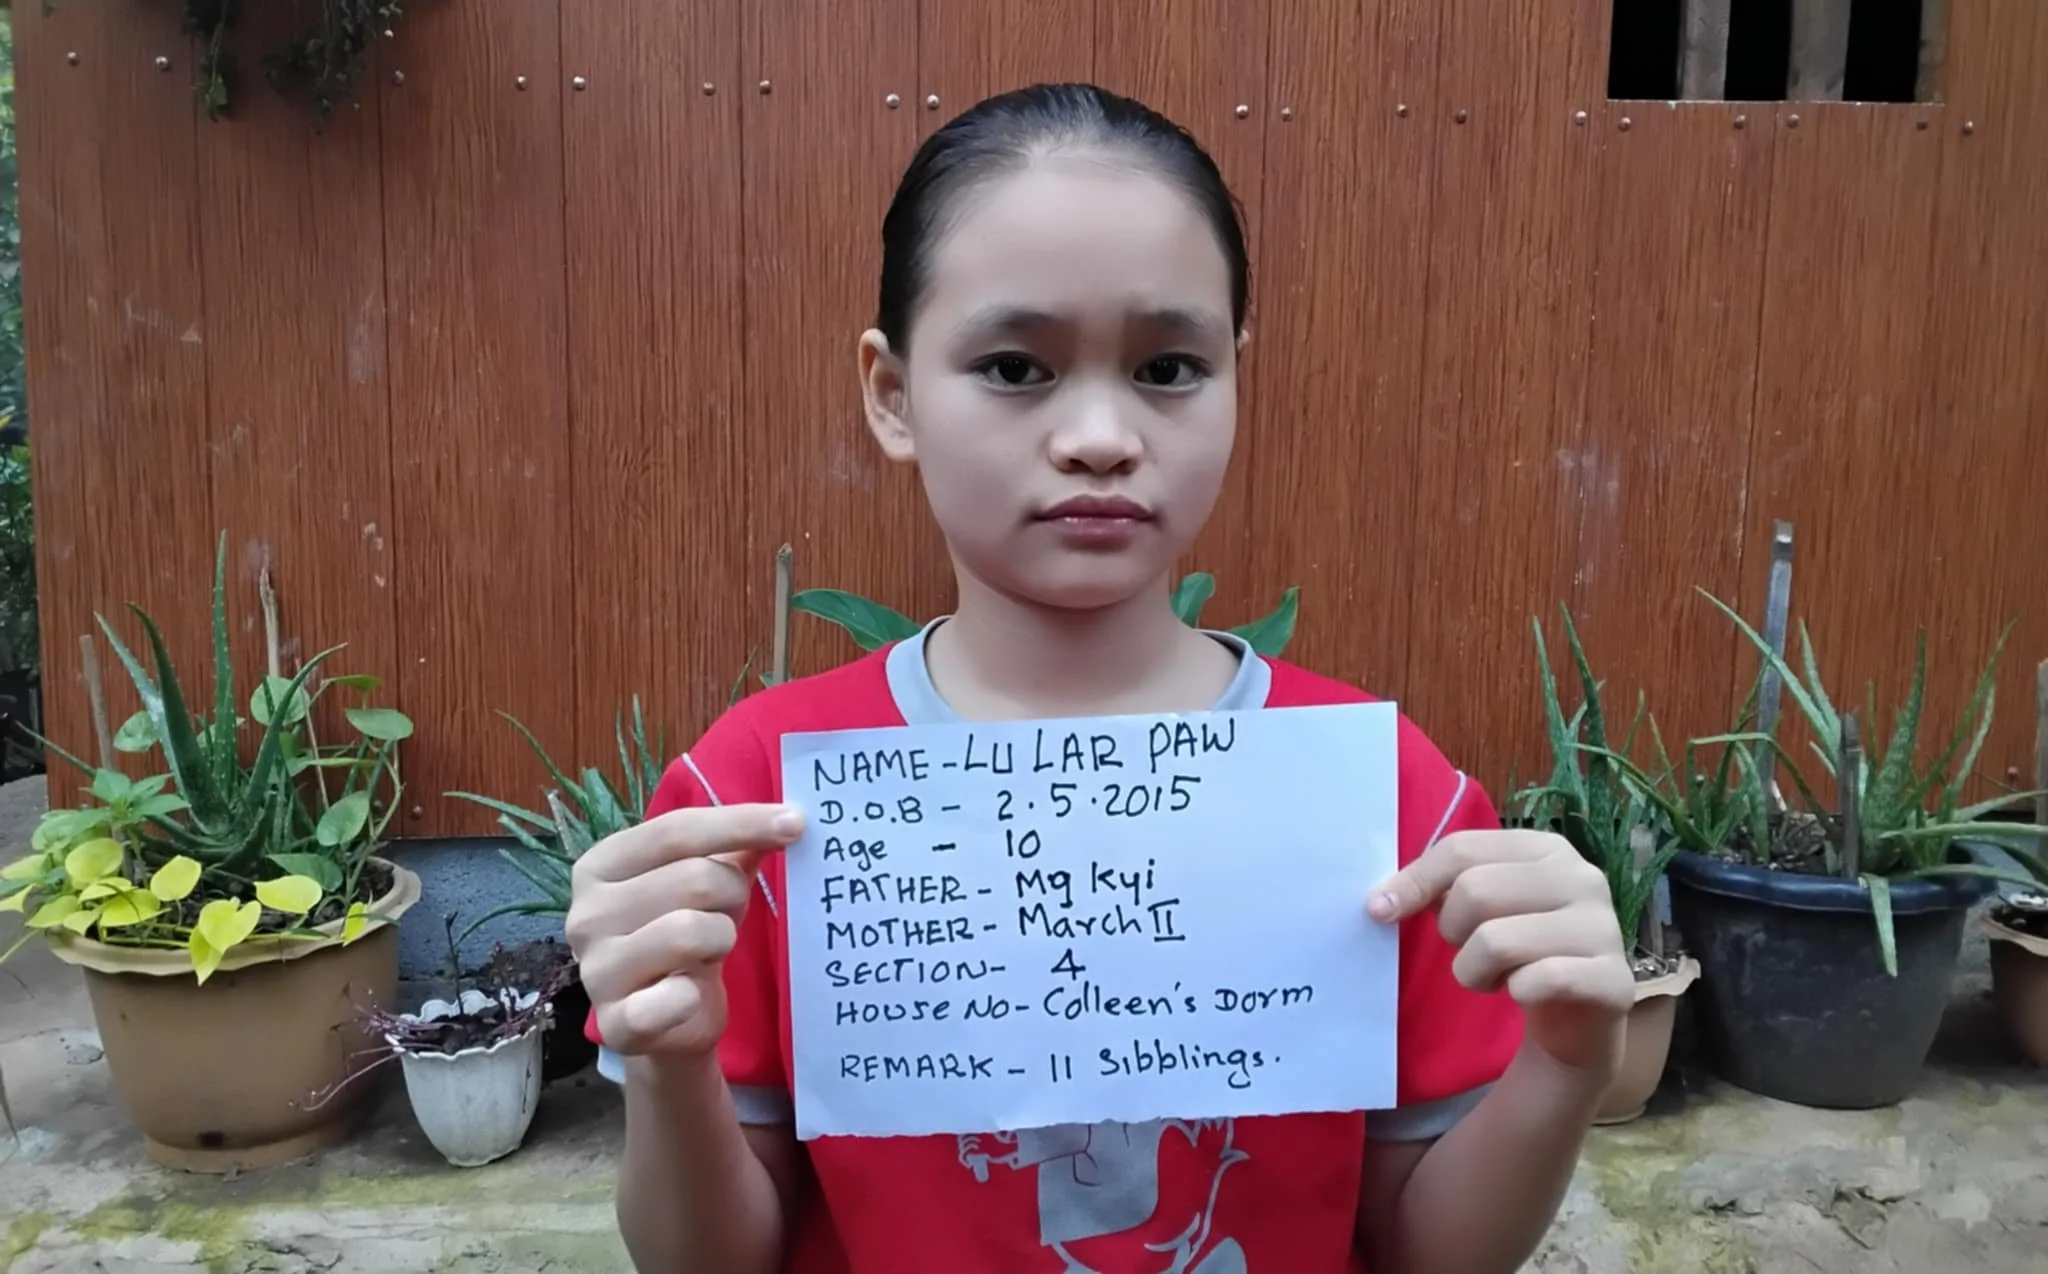 NAME - LU LAR PAW
D.O.B - 2.5.2015
Age - 10
FATHER - Mg Kyi
MOTHER - March II
SECTION - 4
HOUSE NO - Colleen's Dorm
REMARK - 11 Sibblings.